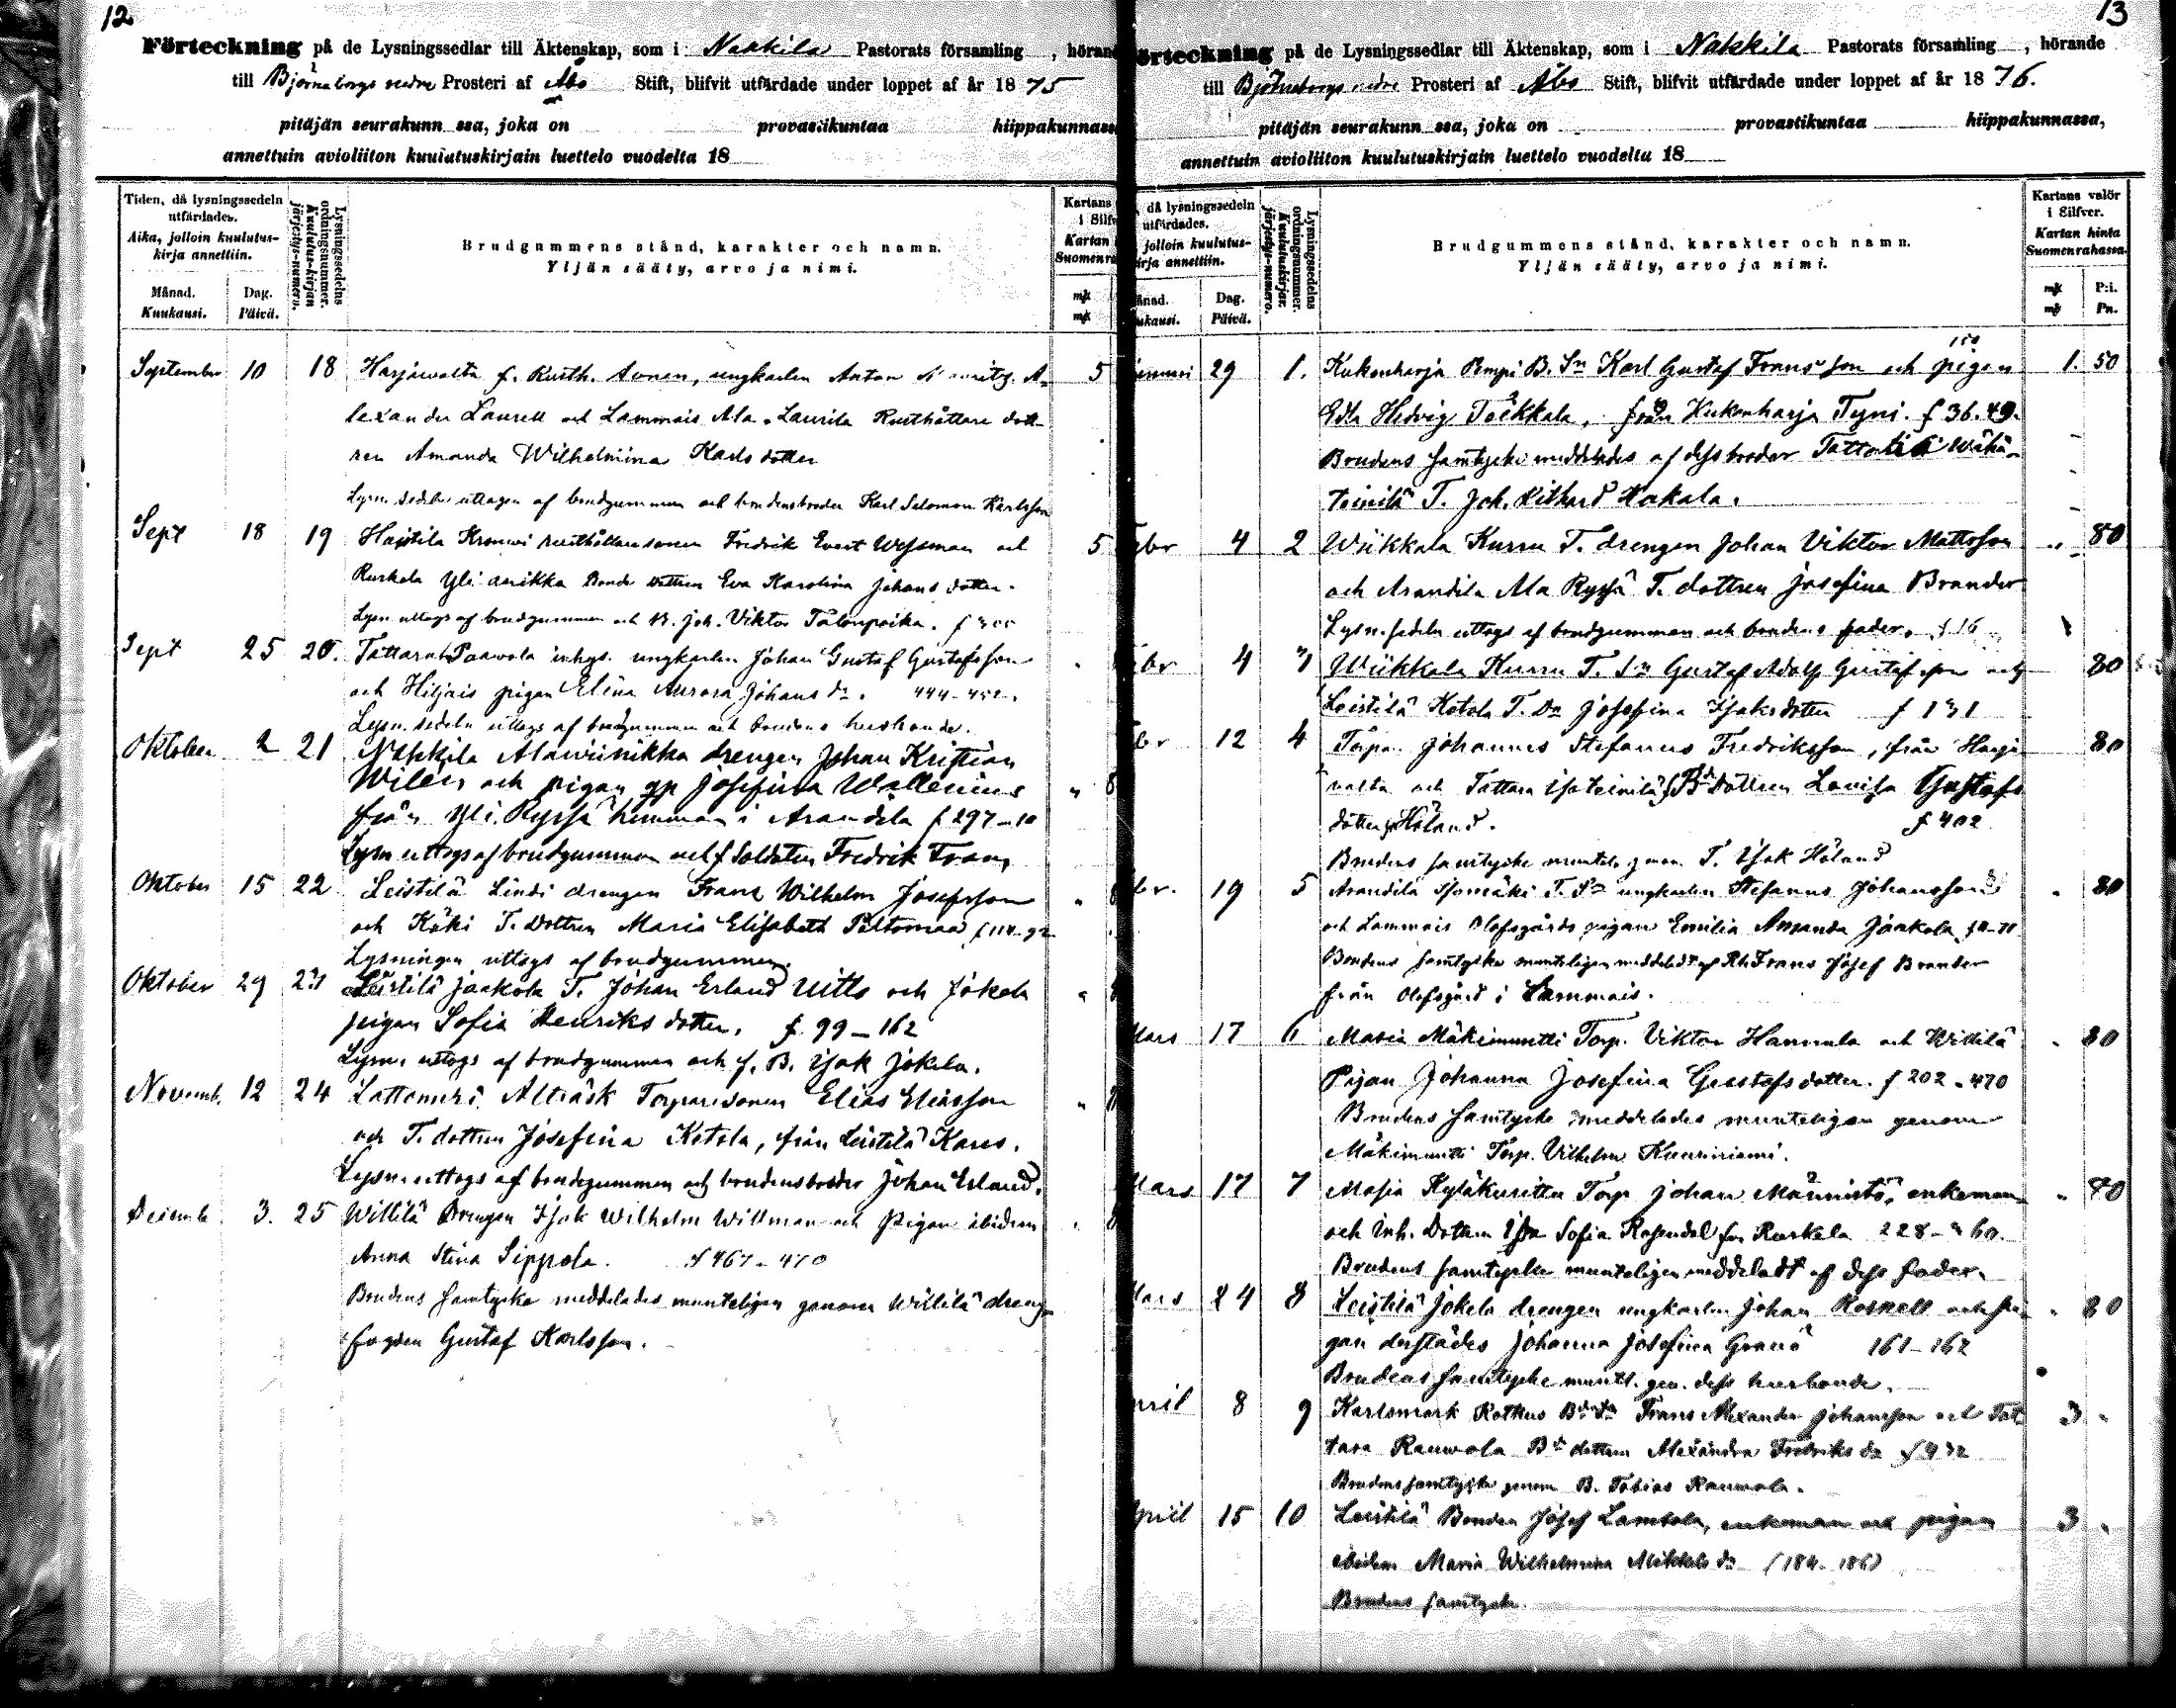 12
Förteckning på de Lysningssedlar till Äktenskap, som i Nakkila Pastorats församling , hörande
till Björneborgs nedre Prosteri af Åbo Stift, blifvit utfärdade under loppet af år 1875
pitäjän seurakunn ssa, joka on provastikuntaa hiippakunnassa
annettuin avioliiton kuulutuskirjain luettelo vuodelta 18
Tiden, då lysningssedeln utfärdades.
Aika, jolloin kuulutus-kirja annettiin.
Månad. Kuukausi.
Dag. Päivä.
Lysningssedelns ordningsnummer.
Kuulutus-kirjan järjestys-numero.
Brudgummens stånd, karakter och namn.
Yljän sääty, arvo ja nimi.
Kartans
i Silfv
Kartan
Suomenra
mk
mk
September 10 18 Harjawalta f. Rusth. Sonen, ungkarlen Anton A- 5
lexander Laurell och Lammais Ala-Laurila Rusthållare dott-
ren Amanda Wilhelmina Karlsdotter
Lysn. sedeln uttagen af brudgummen och brudens broder Karl Salomon Karlsson
Sept 18 19 Haistila Krouwi rusthållaresonen Fredrik Evert Wessman och 5
Ruskela Yli Bonde dottren Eva Karolina Johansdotter.
Lysn uttogs af brudgummen och B. Joh. Viktor Talonpoika.
Sept 25 20. Tattara Paawola inhys. ungkarlen Johan Gustaf Gustafsson
och Hiljais pigan Elina Aurora Johans dr. 444-452.
Lysn. sedeln uttogs af brudgummen och brudens husbonde.
Oktober 2 21 Nakkila Alawiinikka drengen Johan Kristian
Wilen och pigan Josefina Wallenius " 8
från Yli. Ryssä hemman i Arandila f 297-10
Lysn uttogs af brudgummen och f Soldaten Fredrik Frans
Oktober 15 22 Leistilä Lindi drengen Frans Wilhelm Josefsson " 8
och Käki T. Dottren Maria Elisabeth Peltomaa f 114-92
Lysningen uttogs af brudgummen.
Oktober 29 23 Leistilä Jaakola T. Johan Erland Uitto och Jokela " 8
pigan Sofia Henriksdotter. f. 99-162
Lysn. uttogs af brudgummen och f. B. Isak Jokela.
Novemb. 12 24 Lattomeri Alträsk Torparesonen Elias Eliasson " 8
och T. dottren Josefina Ketola, från Leistilä Kares.
Lysn. uttogs af brudgummen och brudens broder Johan Erland.
Decemb. 3. 25 Willilä Drengen Isak Wilhelm Willman och Pigan ibidem " 8
Anna Stina Sippola. f 467-470
Brudens samtycke meddelades munteligen genom Willilä dreng-
fogden Gustaf Karlsson.
13
Förteckning på de Lysningssedlar till Äktenskap, som i Nakkila Pastorats församling , hörande
till Björneborgs nedre Prosteri af Åbo Stift, blifvit utfärdade under loppet af år 1876.
pitäjän seurakunn ssa, joka on provastikuntaa hiippakunnassa,
annettuin avioliiton kuulutuskirjain luettelo vuodelta 18
, då lysningssedeln utfärdades.
jolloin kuulutus-
irja annettiin.
ånad.
ukausi.
Dag. Päivä.
Lysningssedelns ordningsnummer.
Kuulutuskirjan järjestys-numero.
Brudgummens stånd, karakter och namn.
Yljän sääty, arvo ja nimi.
Kartans valör i Silfver.
Kartan hinta Suomenrahassa.
mk P:i.
mk Pn.
150
29 1. Kukonharja Pempi B. Sn Karl Gustaf Fransson och pigan 1. 50
Eda Hedvig Teikkala, från Kukonharja Tyni. f 36.49.
Brudens samtycke meddelades af dess broder Tattara Wähä-
teinilä T. Joh. Rikhard Hakala.
ebr 4 2 Wiikkala Kurru T. drengen Johan Viktor Mattsson " 80
och Arandila Ala Ryssä T. dottren Josefina Brander
Lysn. sedeln uttogs af brudgummen och brudens fader. f 16
ebr 4 3 Wiikkala Kurru T. Sn Gustaf Adolf Gustafsson och 80
Leistilä Ketola T. Dn Josefina Isaksdotter f 131
br 12 4 Torpar. Johannes Stefanus Fredriksson, från Harja- 80
valta och Tattara Isoteinilä Bd Dottren Lovisa Gustafs
dotter Höland. f 402
Brudens samtycke muntel. genom T. Isak Höland
br. 19 5 Arandila Isomäki T. Sn ungkarlen Stefanus Johansson " 80
och Lammais Olofsgårds pigan Emilia Amanda Jaakola
Brudens samtycke munteligen meddeladt af Rh. Frans Josef Brander
från Olofsgård i Lammais.
Mars 17 6 Masia Mäkimuntti Torp. Viktor Hannula och Willilä " 80
Pigan Johanna Josefina Gustafsdotter. f 202-470
Brudens samtycke meddelades munteligen genom
Mäkimuntti Torp. Vilhelm Kuusiniemi.
Mars 17 7 Masia Kyläkuritta Torp Johan Männistö, enkeman " 80
och inh. Dottren Sofia Rosendal fr. Ruskela 228-
Brudens samtycke munteligen meddeladt af dess fader.
Mars 24 8 Leistilä Jokela drengen ungkarlen Johan Roskell och pi- " 80
gan derstädes Johanna Josefina Granö 161-162
Brudens samtycke muntl. gen. dess husbonde.
April 8 9 Karlsmark Rotkus Frans Alexander Johansson och Tat 3 "
tara Rauwola Bd dottren Alexandra Fredriks dr f 432
Brudens samtycke genom B. Tobias Rauwola.
April 15 10 Leistilä Bonden Josef Lamtola, enkeman och pigan 3 "
ibidem Maria Wilhelmina Mikkels dr (184-186)
Brudens samtycke.